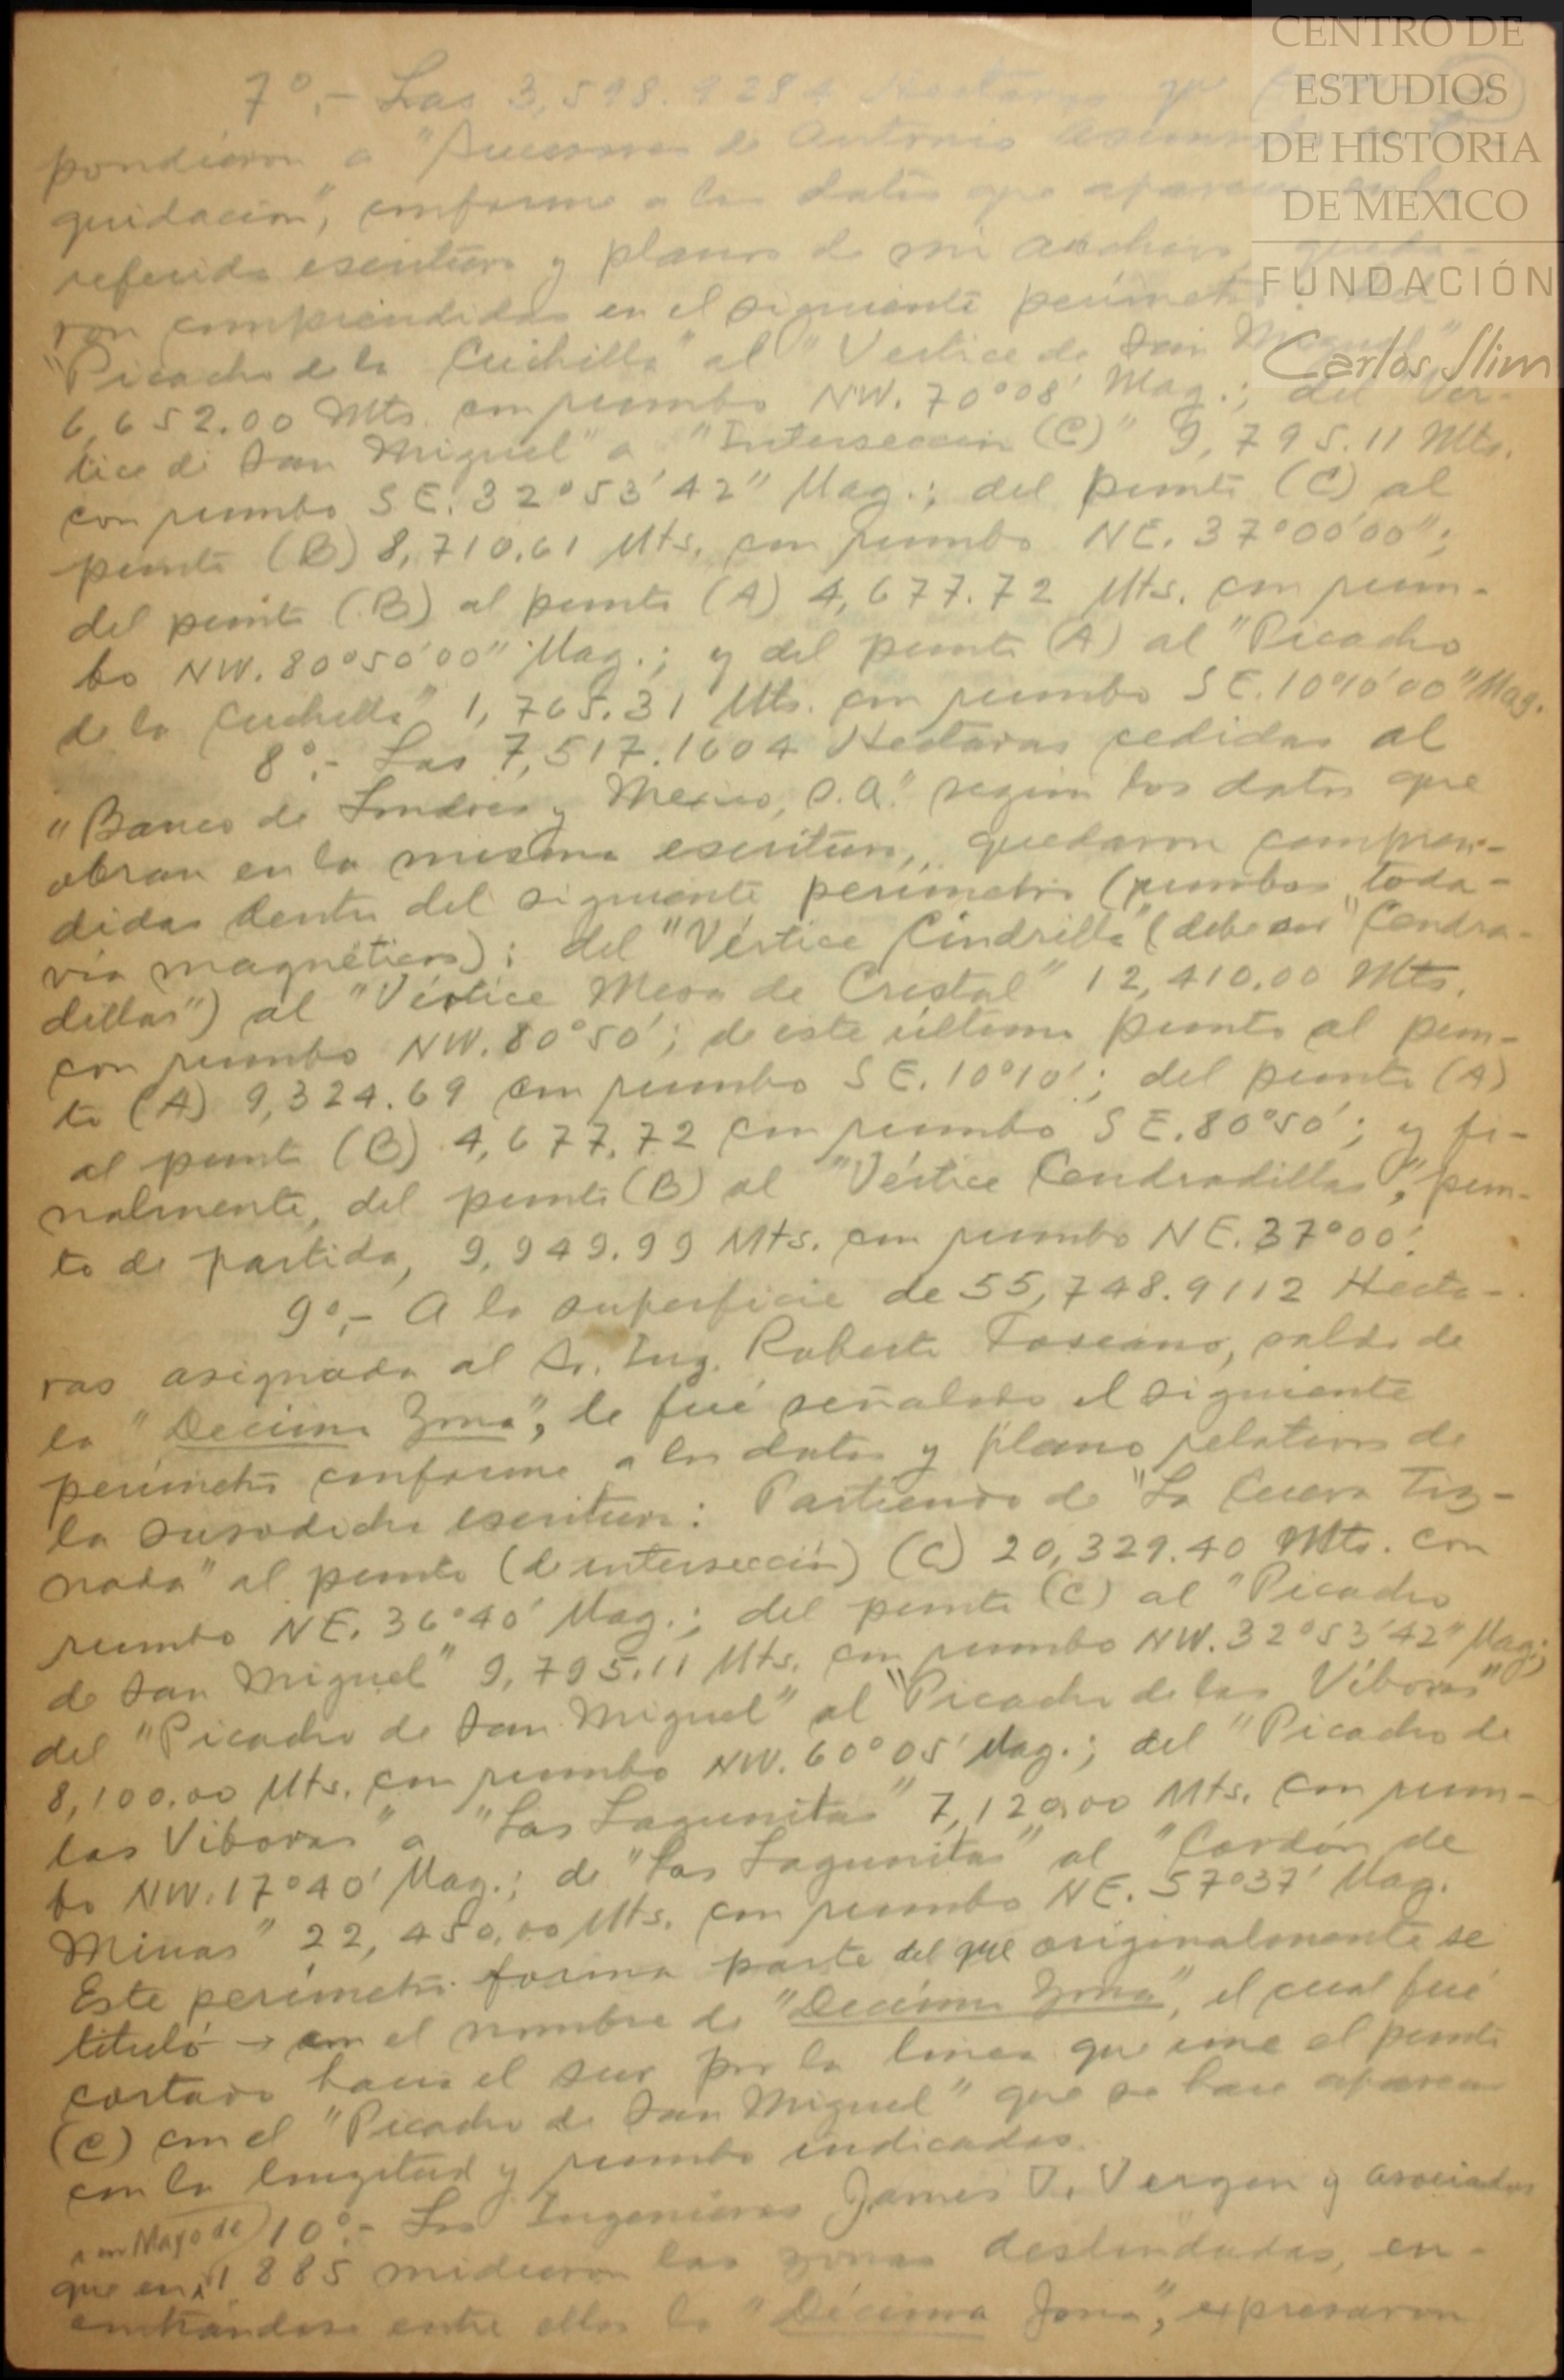 CENTRO DE
ESTUDIOS
DE HISTORIA
DE MEXICO
FUNDACIÓN
Carlos Slim
7°.- Las 3,598.9284 Hectareas que
pondieron a "Sucesores de Antonio Asúnsolo
quidación", conforme a los datos que aparecen en la
referida escritura y planos de mi archivo, queda-
ron comprendidas en el siguiente perímetro: del
"Picacho de la Cuchilla" al "Vertice de San Miguel"
6,652.00 Mts. con rumbo NW. 70°08' Mag.; del Ver-
tice de San Miguel" a "Intersección (C)" 9,795.11 Mts.
con rumbo SE. 32°53'42" Mag.; del punto (C) al
punto (B) 8,710.61 Mts. con rumbo NE. 37°00'00";
del punto (B) al punto (A) 4,677.72 Mts. con rum-
bo NW. 80°50'00" Mag.; y del punto (A) al "Picacho
de la Cuchilla" 1,765.31 Mts. con rumbo SE. 10°10'00" Mag.
8°.- Las 7,517.1604 Hectaras cedidas al
"Banco de Londres y Mexico, S.A." según los datos que
obran en la misma escritura, quedaron compren-
didas dentro del siguiente perímetro (rumbos toda-
vía magnéticos): del "Vértice Cindrilla" (debe ser "Cendra-
dillas") al "Vértice Mesa de Cristal" 12,410.00 Mts.
con rumbo NW. 80°50'; de este último punto al pun-
to (A) 9,324.69 con rumbo SE. 10°10'; del punto (A)
al punto (B) 4,677.72 con rumbo SE. 80°50'; y fi-
nalmente, del punto (B) al "Vértice Cendradillas", pun-
to de partida, 9,949.99 Mts. con rumbo NE. 37°00'.
9°.- A la superficie de 55,748.9112 Hecta-
ras asignada al Sr. Ing. Roberto Toscano, saldo de
la "Decima Zona", le fué señalado el siguiente
perímetro conforme a los datos y plano relativos de
la susodicha escritura: Partiendo de "La Cueva Tiz-
nada" al punto (de intersección) (C) 20,329.40 Mts. con
rumbo NE. 36°40' Mag.; del punto (C) al "Picacho
de San Miguel" 9,795.11 Mts. con rumbo NW. 32°53'42" Mag.;
del "Picacho de San Miguel" al "Picacho de las Víboras"
8,100.00 Mts. con rumbo NW. 60°05' Mag.; del "Picacho de
las Víboras" a "Las Lagunitas" 7,120.00 Mts. con rum-
bo NW. 17°40' Mag.; de "Las Lagunitas" al "Cordón de
Minas" 22,450.00 Mts. con rumbo NE. 57°37' Mag.
Este perímetro forma parte del que originalmente se
tituló con el nombre de "Decima Zona", el cual fué
cortado hacia el sur por la linea que une el punto
(C) con el "Picacho de San Miguel" que se hace aparecer
con la longitud y rumbo indicados.
10°.- Los Ingenieros James V. Vergen y asociados
Mayo de
que en 1885 midieron las zonas deslindadas, en-
contrándose entre ellas la "Décima Zona", expresaron